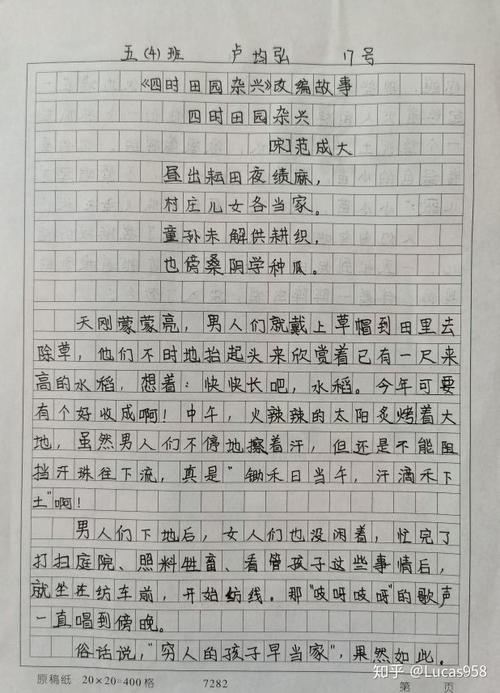 五(4)班 卢均弘 17号
《四时田园杂兴》改编故事
四时田园杂兴
[宋]范成大
昼出耘田夜绩麻，
村庄儿女各当家。
童孙未解供耕织，
也傍桑阴学种瓜。
天刚蒙蒙亮，男人们就戴上草帽到田里去
除草，他们不时地抬起头来欣赏着已有一尺来
高的水稻，想着：快快长吧，水稻。今年可要
有个好收成啊！中午，火辣辣的太阳炙烤着大
地，虽然男人们不停地擦着汗，但还是不能阻
挡汗珠往下流，真是"锄禾日当午，汗滴禾下
土"啊！
男人们下地后，女人们也没闲着，忙完了
打扫庭院、照料牲畜、看管孩子这些事情后，
就坐在纺车前，开始纺线。那"吱呀吱呀"的歌声
一直唱到傍晚。
俗话说，"穷人的孩子早当家"，果然如此。
原稿纸 20×20=400格 7282 第 页
知乎 @Lucas958